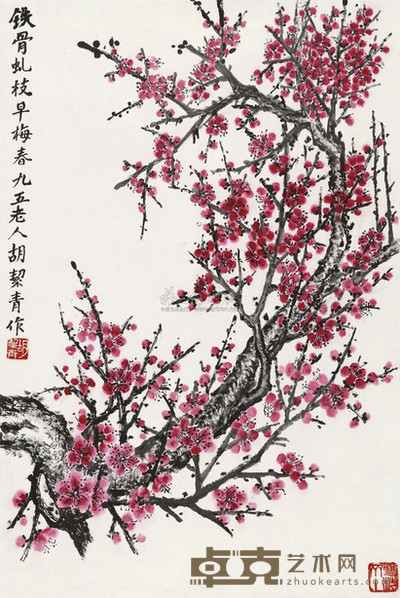 铁骨虬枝早梅春九五老人胡絜青作
卓克艺术网
zhuokearts.com